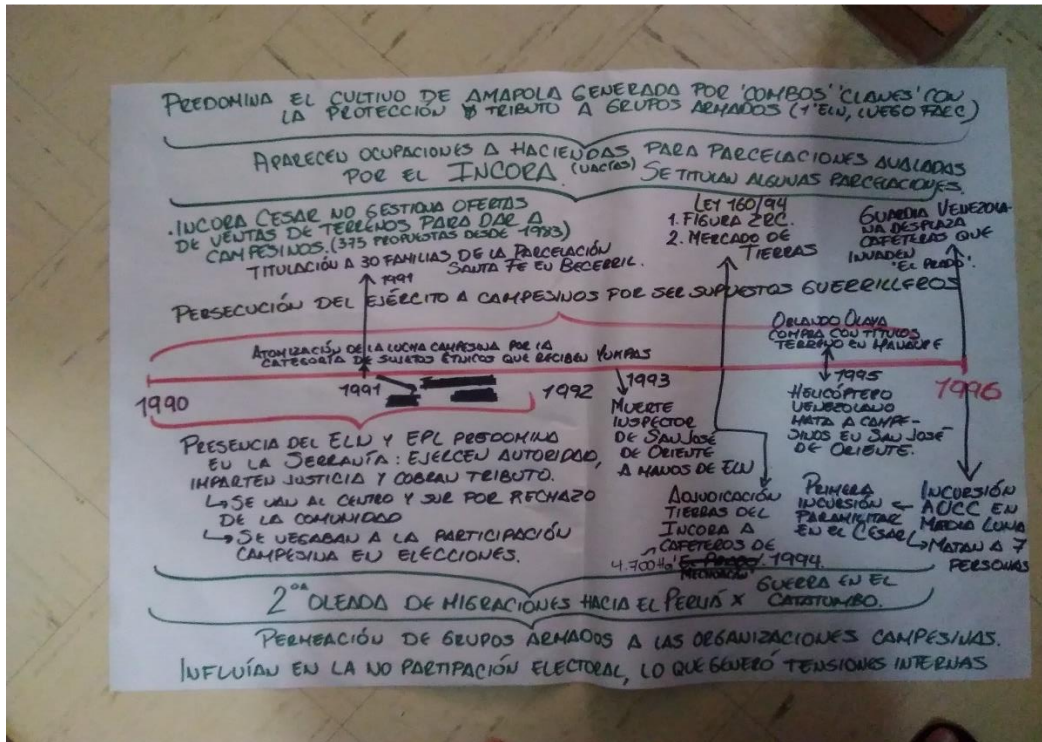 PREDOMINA EL CULTIVO DE AMAPOLA GENERADA POR 'COMBOS' 'CLANES' CON
LA PROTECCIÓN TRIBUTO A GRUPOS ARMADOS (1° ELN, LUEGO FARC)
APARECEN OCUPACIONES A HACIENDAS PARA PARCELACIONES AVALADAS
POR EL INCORA. (VACÍAS) SE TITULAN ALGUNAS PARCELACIONES.
. INCORA CESAR NO GESTIONA OFERTAS
DE VENTAS DE TERRENOS PARA DAR A
CAMPESINOS. (373 PROPUESTAS DESDE 1983)
TITULACIÓN A 30 FAMILIAS DE LA PARCELACIÓN
SANTA FE EN BECERRIL.
1991
LEY 160/94
1. FIGURA ZRC.
2. MERCADO DE
TIERRAS
GUARDIA VENEZOLA-
NA DESPLAZA
CAFETERAS QUE
INVADEN
"EL PRADO".
PERSECUCIÓN DEL EJÉRCITO A CAMPESINOS POR SER SUPUESTOS GUERRILLEROS
ATOMIZACIÓN DE LA LUCHA CAMPESINA POR LA
CATEGORÍA DE SUJETOS ÉTNICOS QUE RECIBEN YUKPAS
ORLANDO OLAYA
COMPRA CON TÍTULOS
TERRENO EN MANAURE
1990
1991
1992
1993
1995
1996
MUERTE
INSPECTOR
DE SAN JOSÉ
DE ORIENTE
A MANOS DE ELN
HELICÓPTERO
VENEZOLANO
MATA A CAMPE-
SINOS EN SAN JOSÉ
DE ORIENTE.
PRESENCIA DEL ELN Y EPL PREDOMINA
EN LA SERRANÍA: EJERCEN AUTORIDAD,
IMPARTEN JUSTICIA Y COBRAN TRIBUTO.
↳ SE VAN AL CENTRO Y SUR POR RECHAZO
DE LA COMUNIDAD
↳ SE NEGABAN A LA PARTICIPACIÓN
CAMPESINA EN ELECCIONES.
ADJUDICACIÓN
TIERRAS DEL
INCORA A
CAFETEROS DE
4.700 Ha 1994
PRIMERA
INCURSIÓN
PARAMILITAR
EN EL CESAR
INCURSIÓN
ACCC EN
MEDIA LUNA
↳ MATAN A 7
PERSONAS
2ᵈᵃ OLEADA DE MIGRACIONES HACIA EL PERIJÁ X GUERRA EN EL
CATATUMBO.
PERMEACIÓN DE GRUPOS ARMADOS A LAS ORGANIZACIONES CAMPESINAS.
INFLUÍAN EN LA NO PARTIPACIÓN ELECTORAL, LO QUE GENERÓ TENSIONES INTERNAS